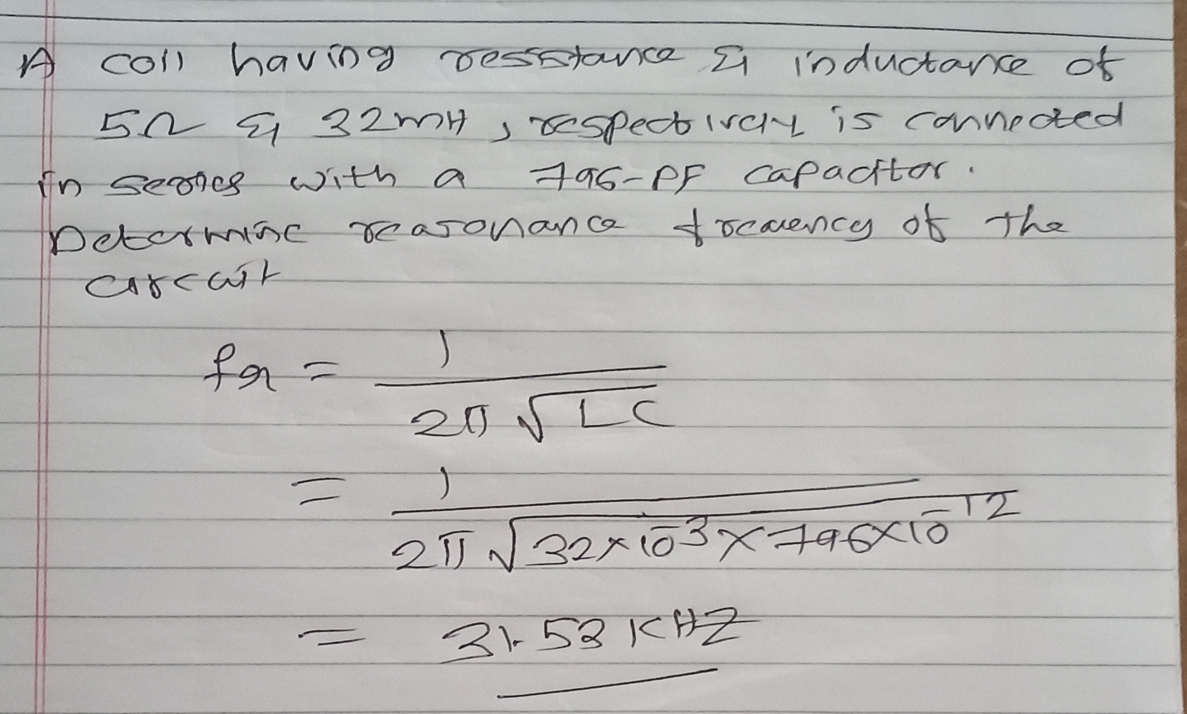 A coil having resistance & inductance of
5Ω & 32mH, respectively is connected
in series with a 796-PF capacitor.
Determine reasonance frequency of the
circuit
fr = 1 / 2π √LC
= 1 / 2π √32×10⁻³×796×10⁻¹²
= 31.53 KHZ